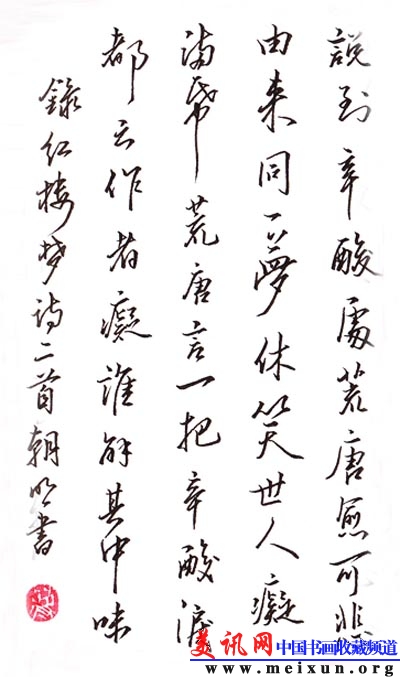 説到辛酸處荒唐愈可悲
由来同一夢休笑世人癡
满帋荒唐言一把辛酸淚
都云作者癡誰解其中味
録红楼梦诗二首朝明書
美讯网 中国书画收藏频道
www.meixun.org